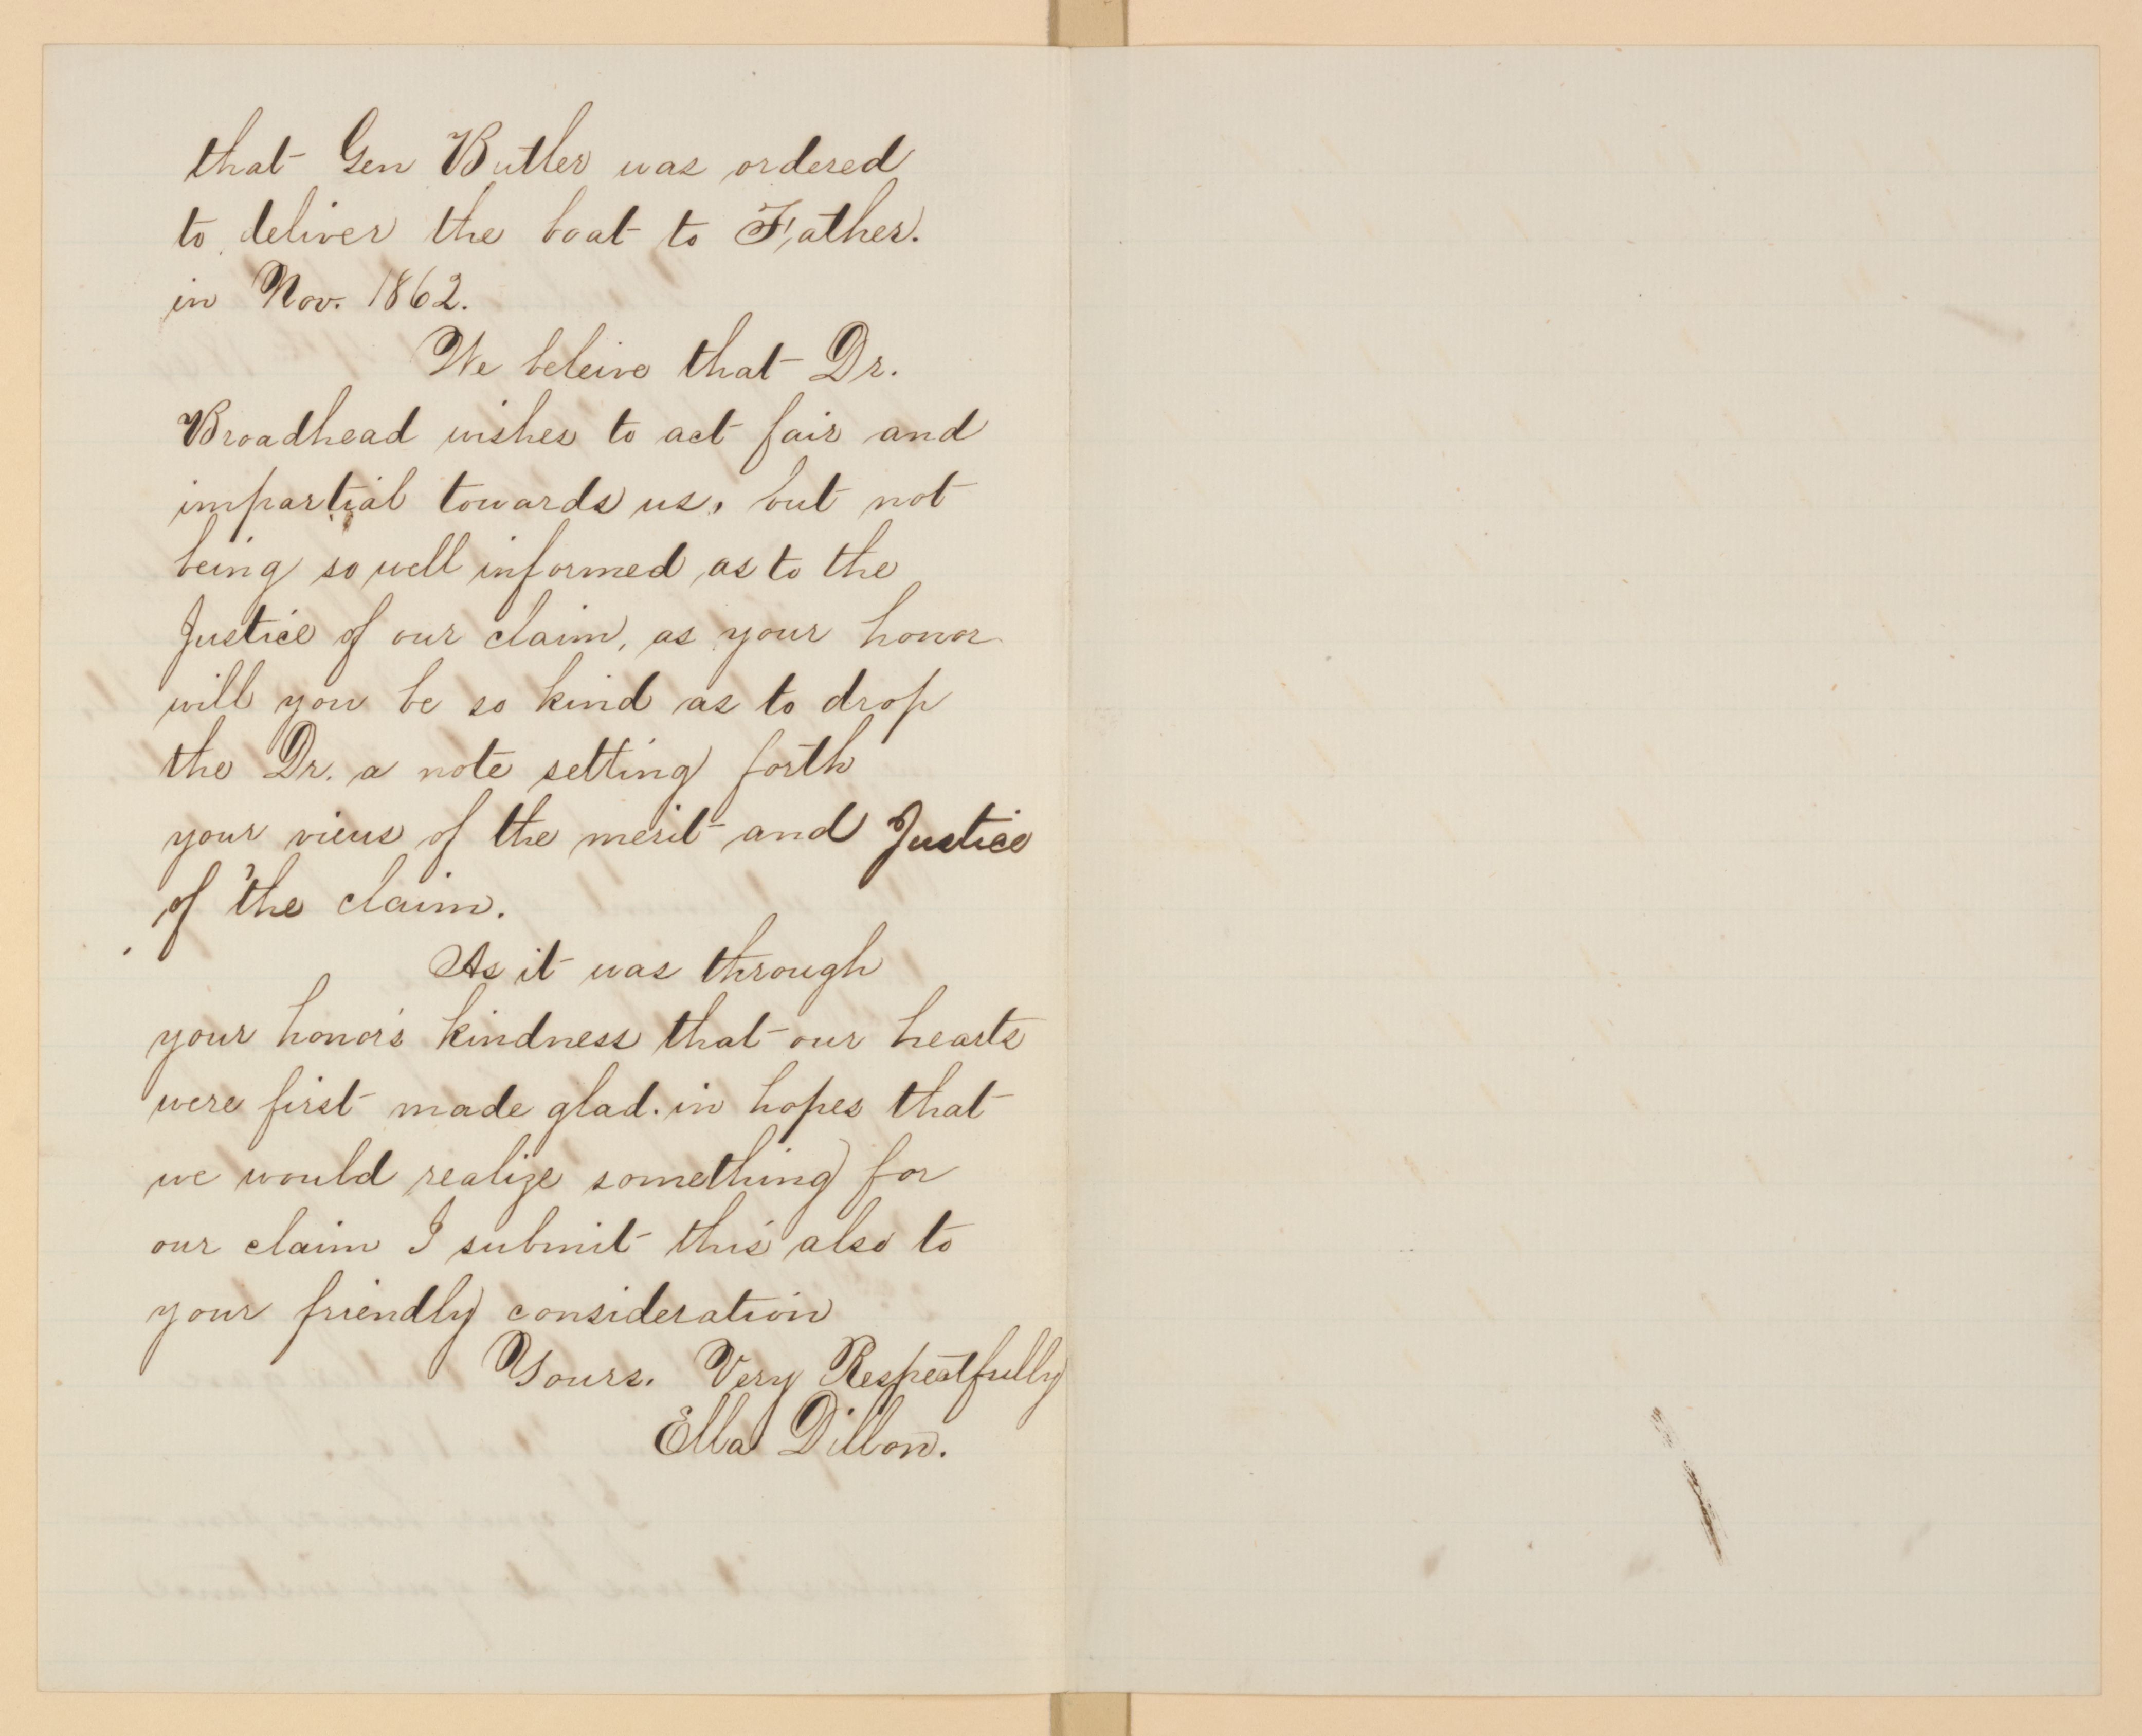 that Gen Butler was ordered
to deliver the boat to Father.
in Nov. 1862.
We beleive that Dr.
Broadhead wishes to act fair and
impartial towards us, but not
being so well informed as to the
Justice of our claim, as your honor
will you be so kind as to drop
the Dr. a note setting forth
your views of the merit and Justice
of the claim.
As it was through
your honor's kindness that our hearts
were first made glad. in hopes that
we would realize something for
our claim I submit this also to
your friendly consideration
Yours. Very Respectfully
Ella Dillon.